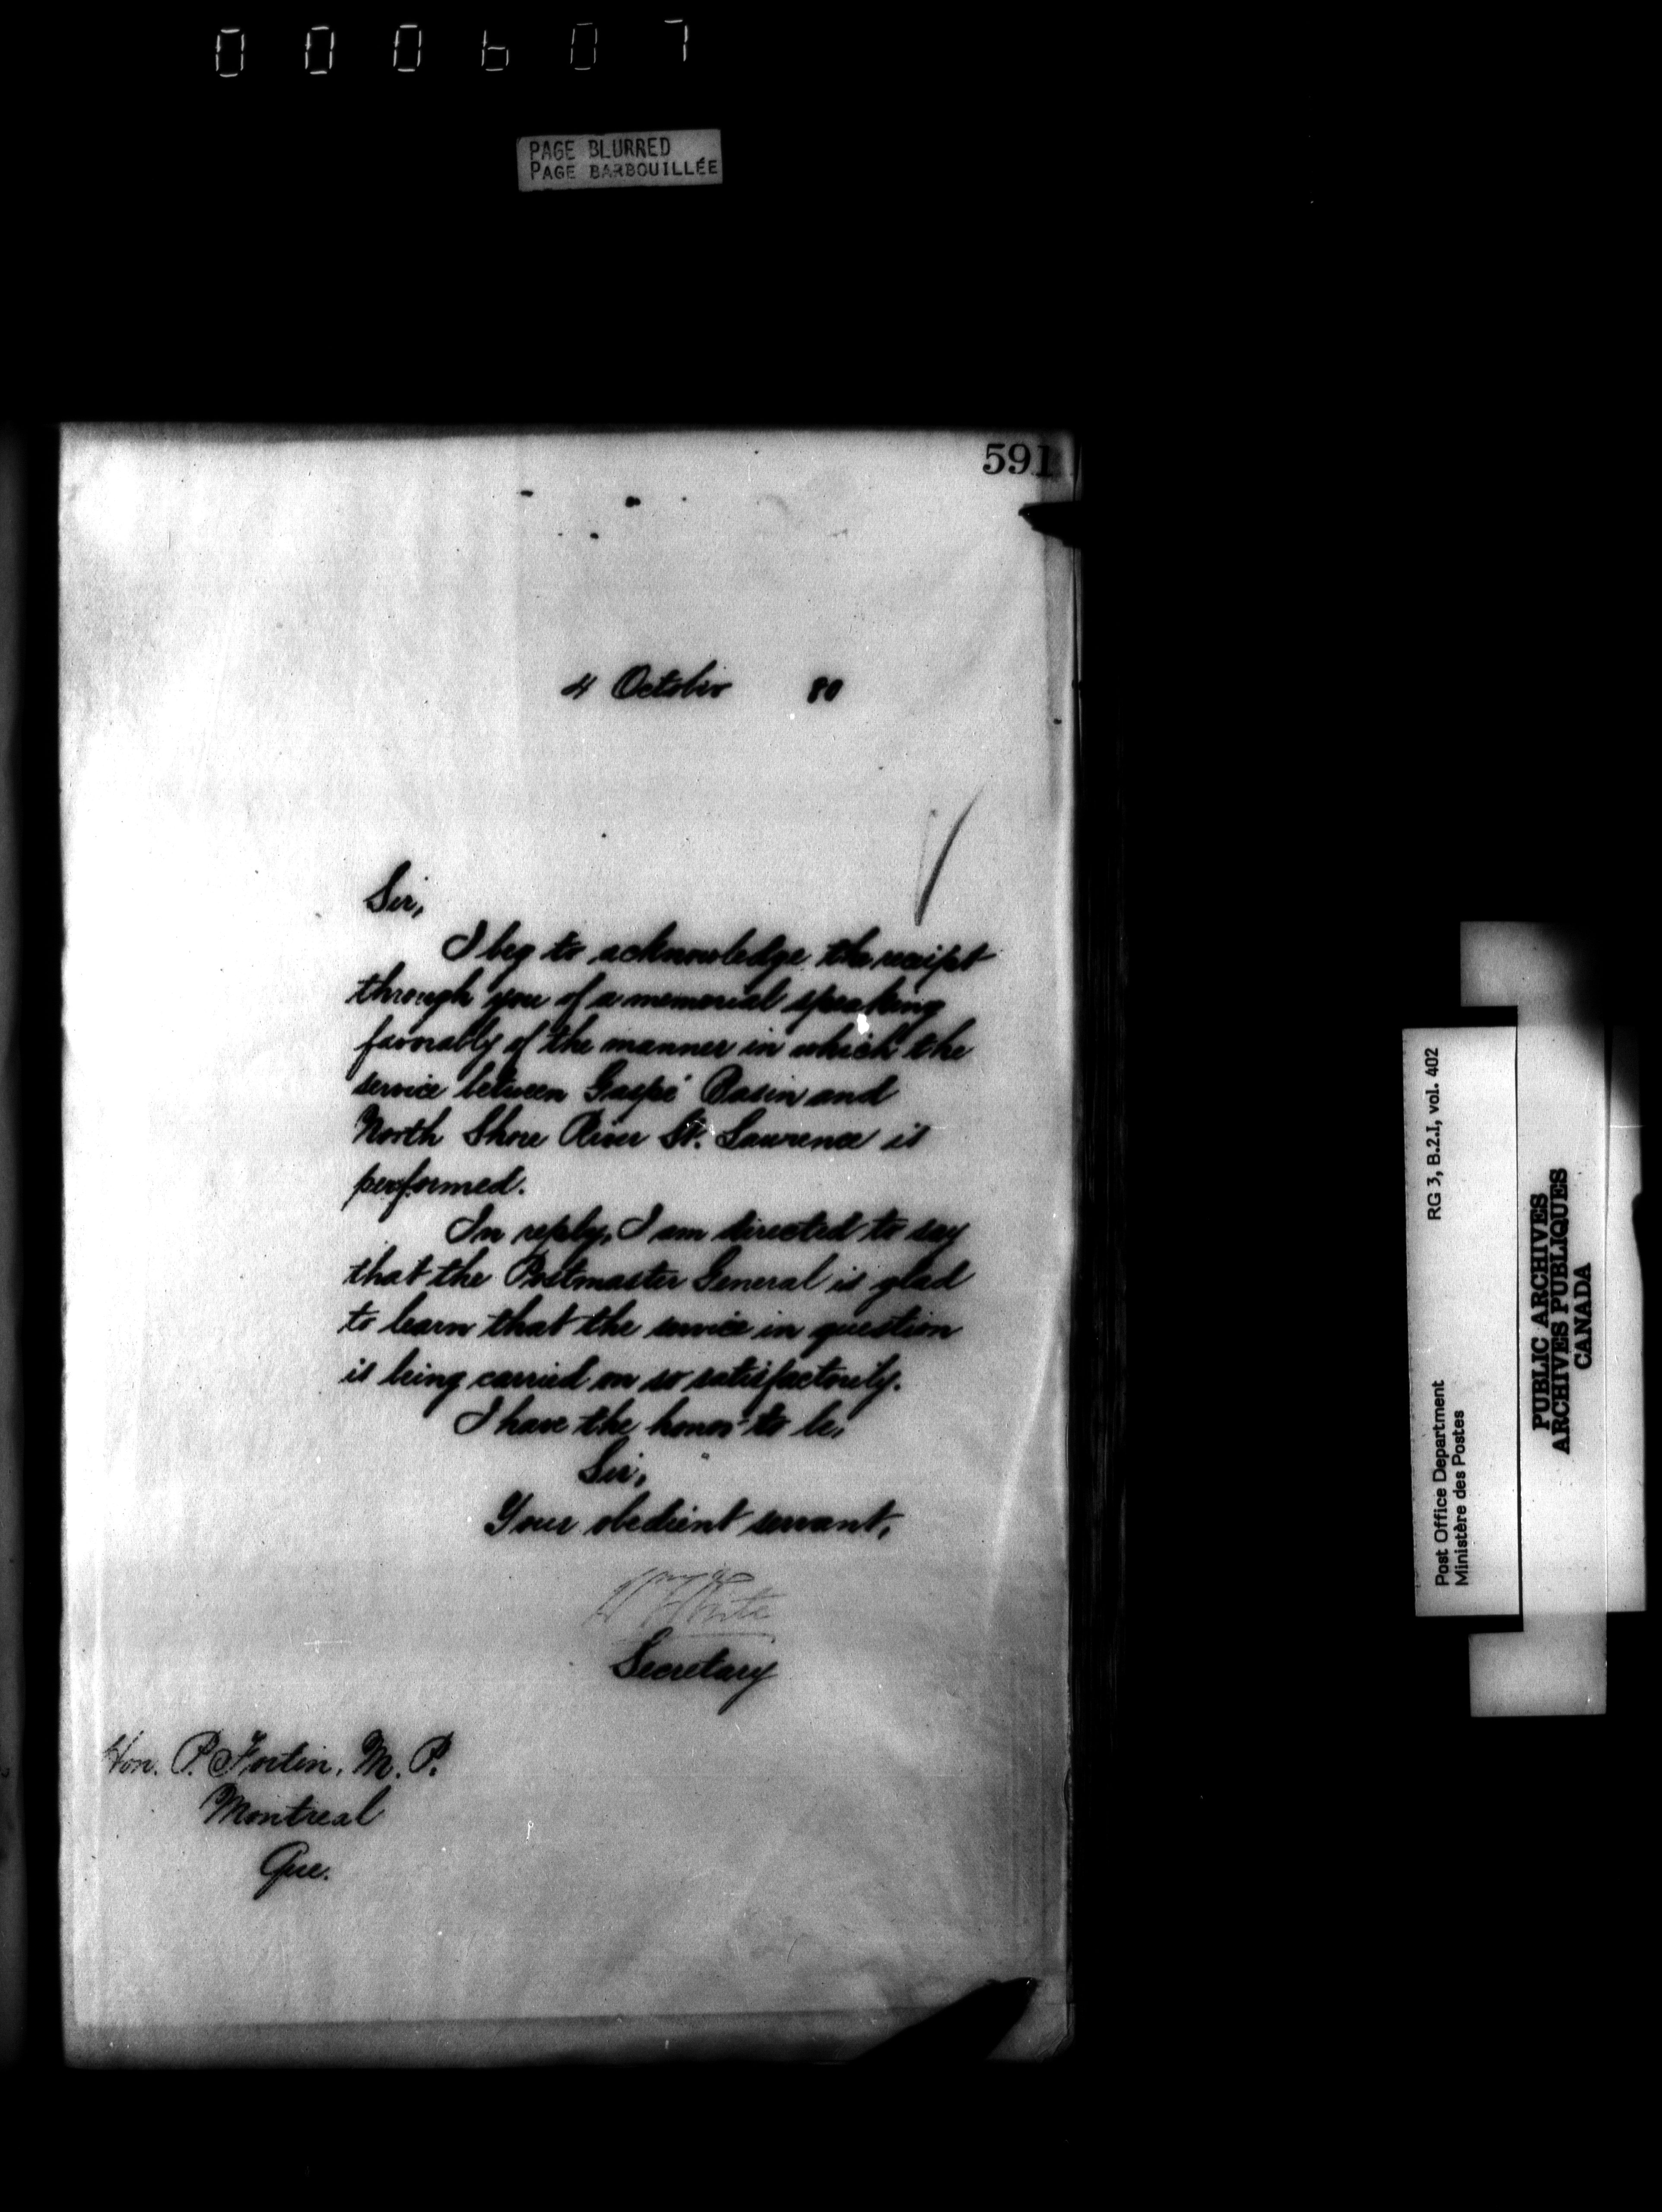 000607
PAGE BLURRED
PAGE BARBOUILLÉE
591
4 October 80
Sir,
I beg to acknowledge the receipt
through you of a memorial speaking
favorably of the manner in which the
service between Gaspé Basin and
North Shore River St. Lawrence is
performed.
In reply, I am directed to say
that the Postmaster General is glad
to learn that the service in question
is being carried on so satisfactorily.
I have the honor to be,
Sir,
Your obedient servant,
White
Secretary
Hon. P. Fortin, M. P.
Montreal
Que.
Post Office Department RG 3, B.2.I, vol. 402
Ministère des Postes
PUBLIC ARCHIVES
ARCHIVES PUBLIQUES
CANADA